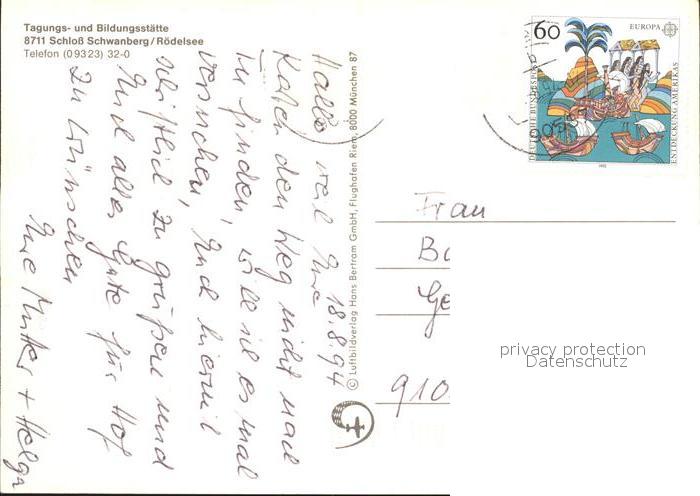 Tagungs- und Bildungsstätte
8711 Schloß Schwanberg/Rödelsee
Telefon (09323) 32-0
18.8.94
Hallo, weil Ihre
Karten den Weg nicht mal
zu finden, will ich es mal
versuchen, Euch hiermit
schriftlich zu grüßen und
Euch alles Gute für Hof
zu wünschen
Eure Mutter + Helga
© Luftbildverlag Hans Bertram GmbH, Flughafen Riem, 8000 München 87
60
EUROPA
DEUTSCHE BUNDESPOST
ENTDECKUNG AMERIKAS
1992
Frau
Ge
910
privacy protection
Datenschutz